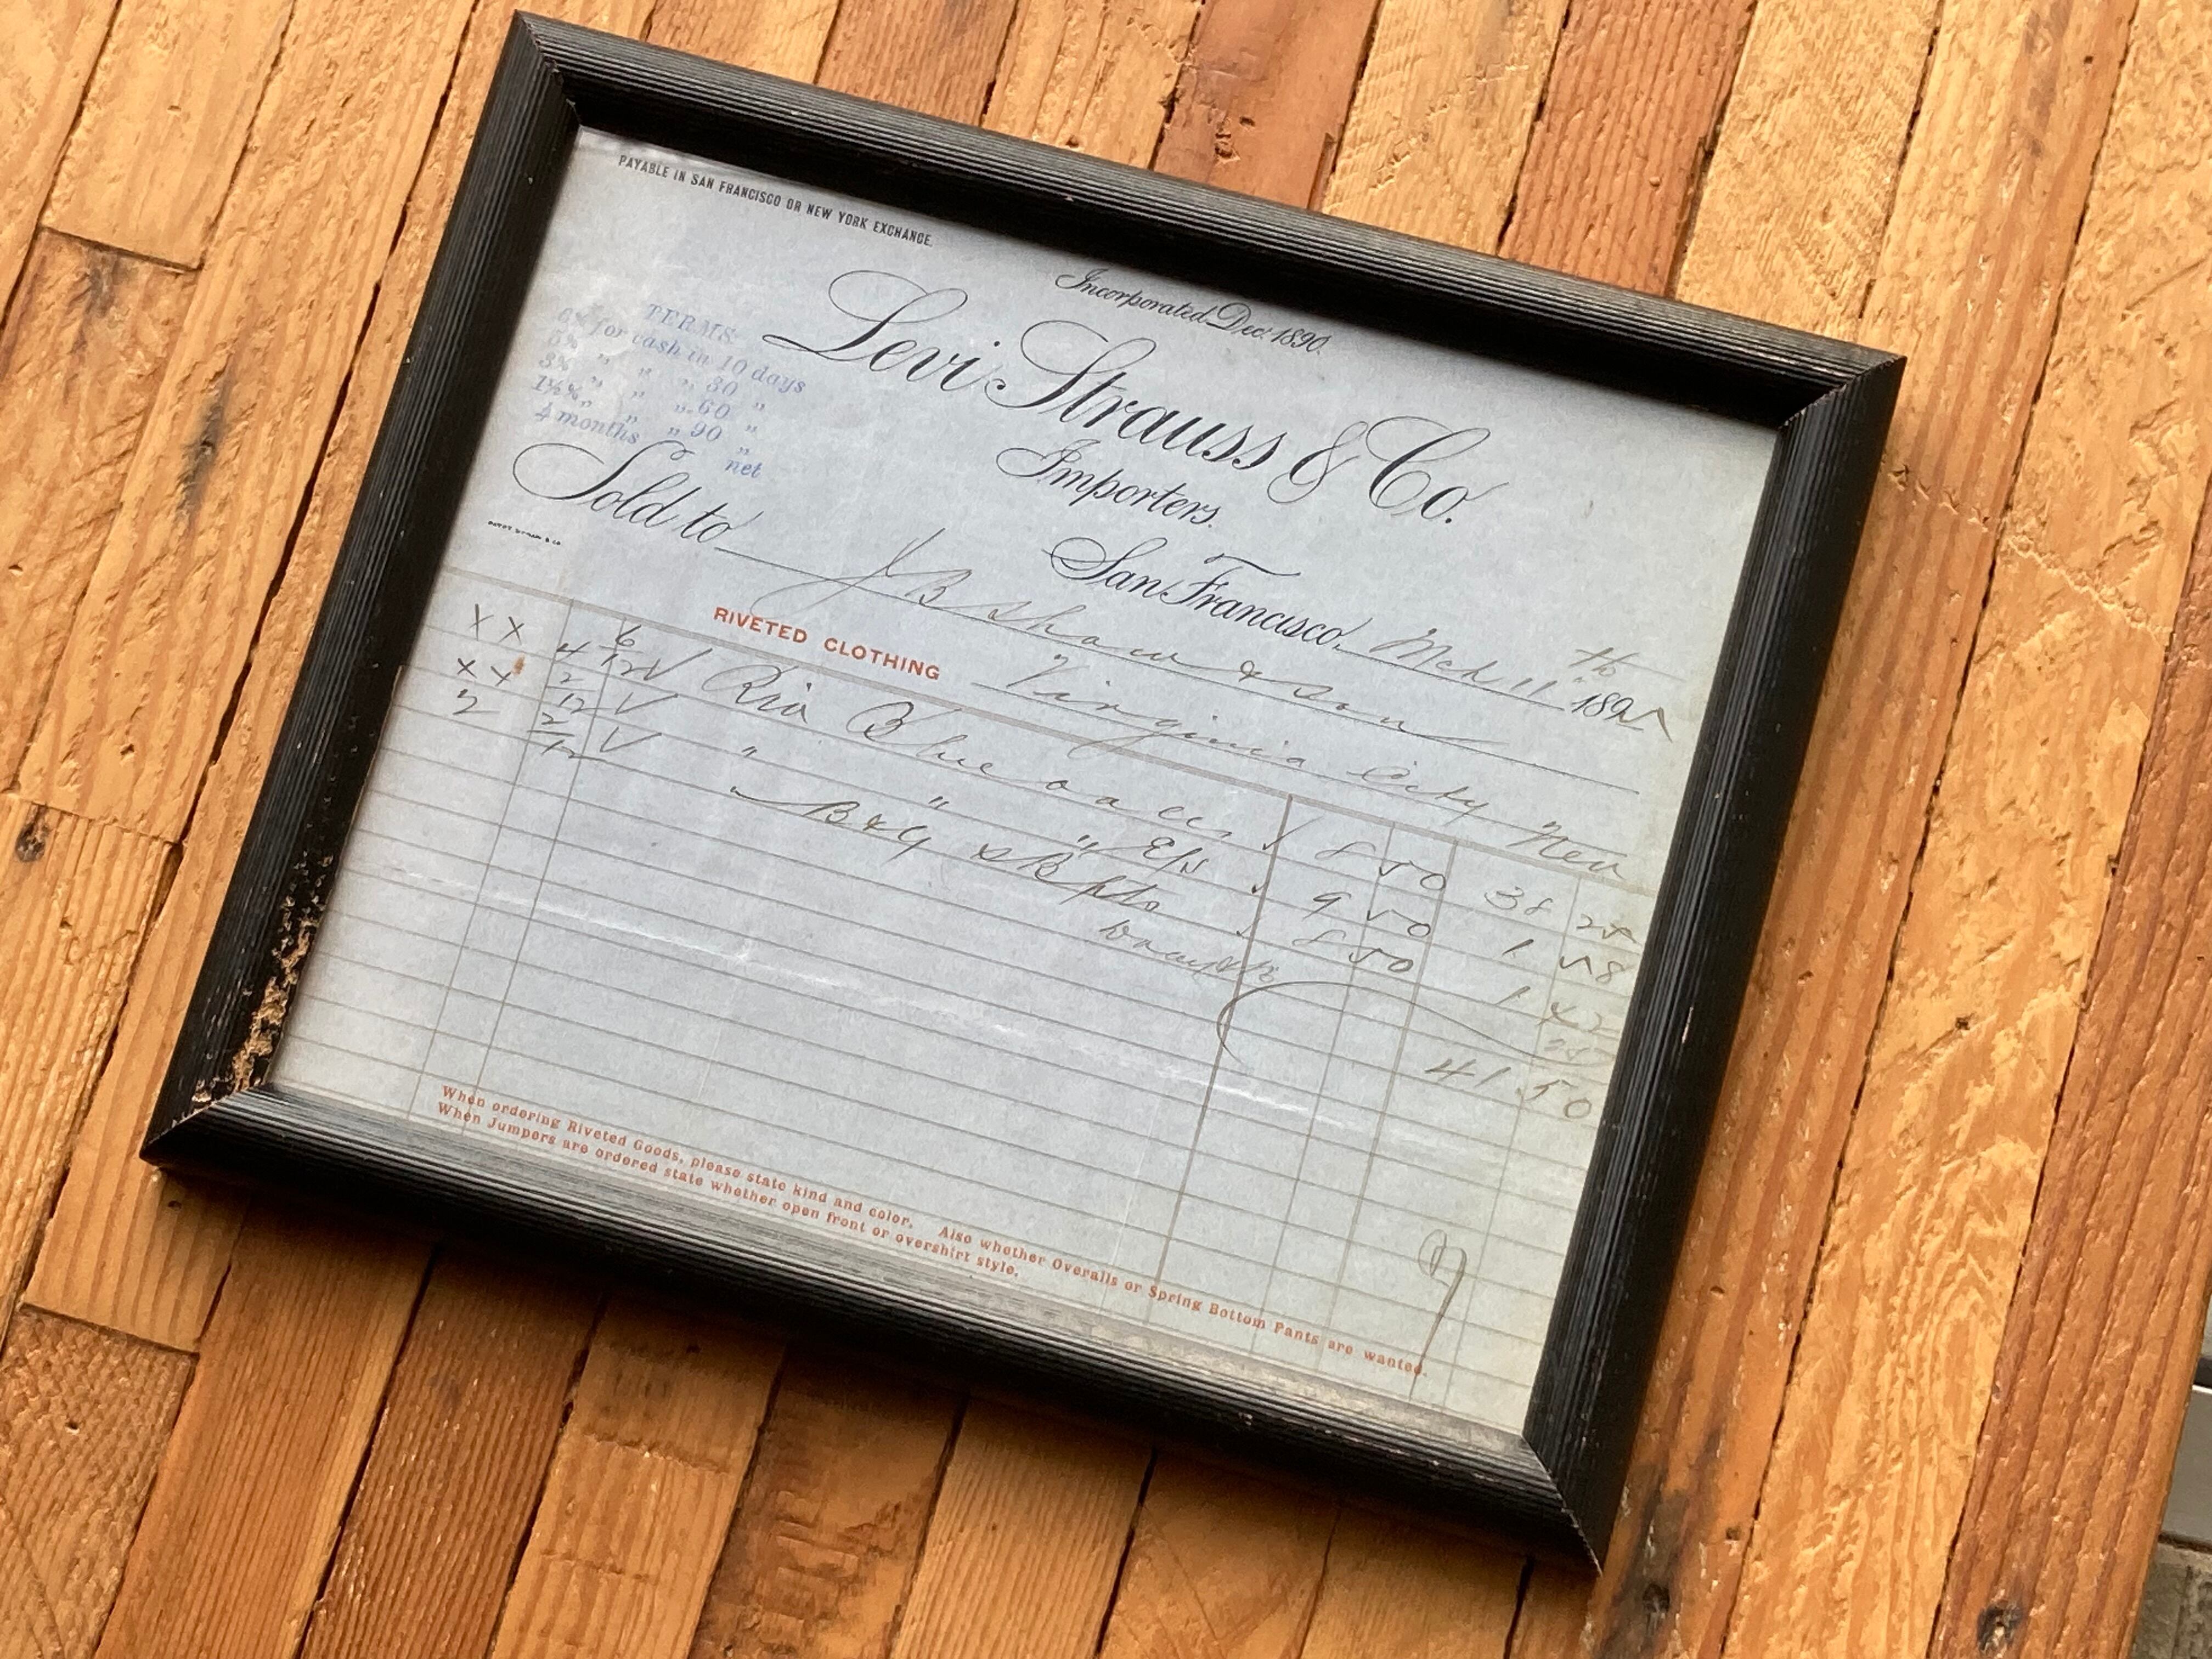 PAYABLE IN SAN FRANCISCO OR NEW YORK EXCHANGE.
Incorporated Dec. 1890.
Levi Strauss & Co.
Importers.
San Francisco, Mch 11th 1895
TERMS:
6% for cash in 10 days
5% " " " 30 "
3% " " " 60 "
1½% " " " 90 "
4 months net
Sold to J B Shaw & Son
RIVETED CLOTHING Virginia City Nev
XX 4 6/12 V Riv Blue oalls 8 50 38 25
XX 2/12 V " " " E/s 9 50 1 58
2 2/12 V " B&G SB pts 8 50 1 42
25
41.50
When ordering Riveted Goods, please state kind and color. Also whether Overalls or Spring Bottom Pants are wanted.
When Jumpers are ordered state whether open front or overshirt style.